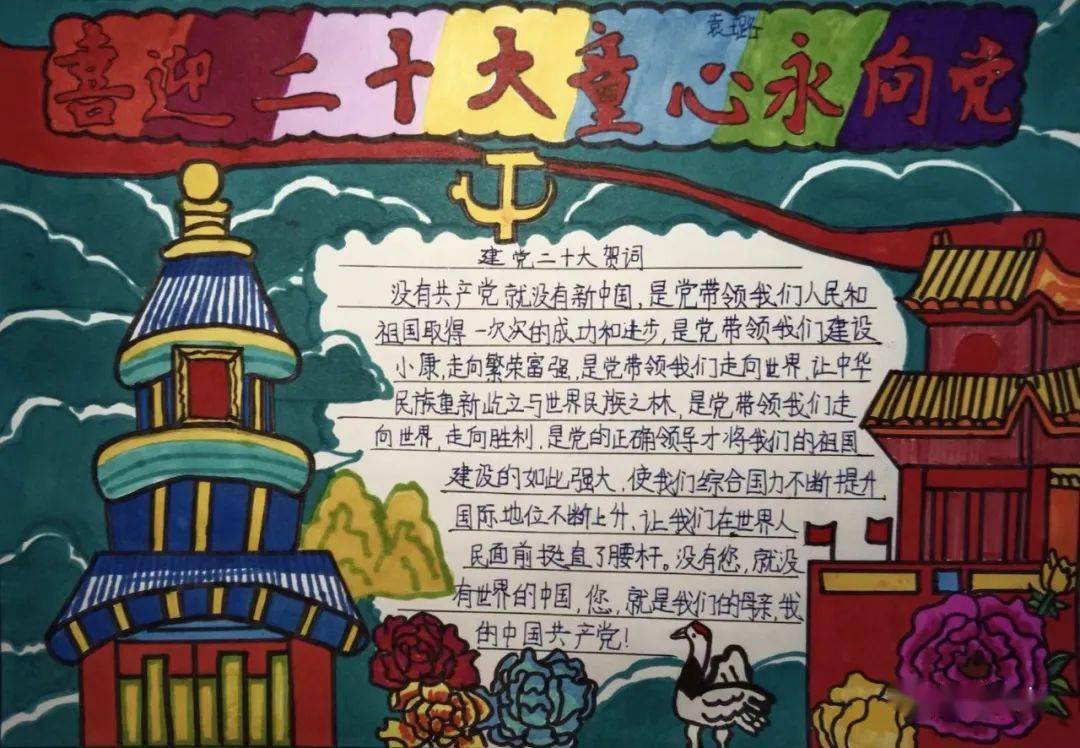 喜迎二十大童心永向党
袁璐
建党二十大贺词
没有共产党就没有新中国,是党带领我们人民和
祖国取得一次次的成功和进步,是党带领我们建设
小康,走向繁荣富强,是党带领我们走向世界,让中华
民族重新屹立与世界民族之林,是党带领我们走
向世界,走向胜利,是党的正确领导才将我们的祖国
建设的如此强大,使我们综合国力不断提升
国际地位不断上升,让我们在世界人
民面前挺直了腰杆。没有您,就没
有世界的中国,您,就是我们的母亲,我
的中国共产党!